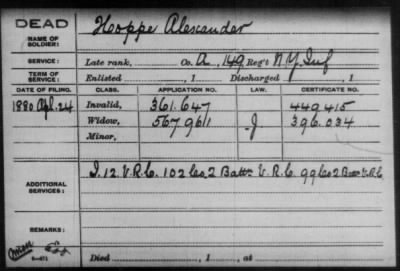 DEAD Hoppe Alexander
NAME OF SOLDIER:
SERVICE: Late rank, Co. A, 149 Reg't N.Y. Inf
TERM OF SERVICE: Enlisted , 1 Discharged , 1
DATE OF FILING. CLASS. APPLICATION NO. LAW. CERTIFICATE NO.
1880 Apl. 24 Invalid, 361.647 449.415
Widow, 567.961 J 396.034
Minor,
ADDITIONAL SERVICES: I. 12. V.R.C. 102 Co. 2 Battn V.R.C. 99 Co 2 Battn V.R.C.
REMARKS:
Died , 1 , at